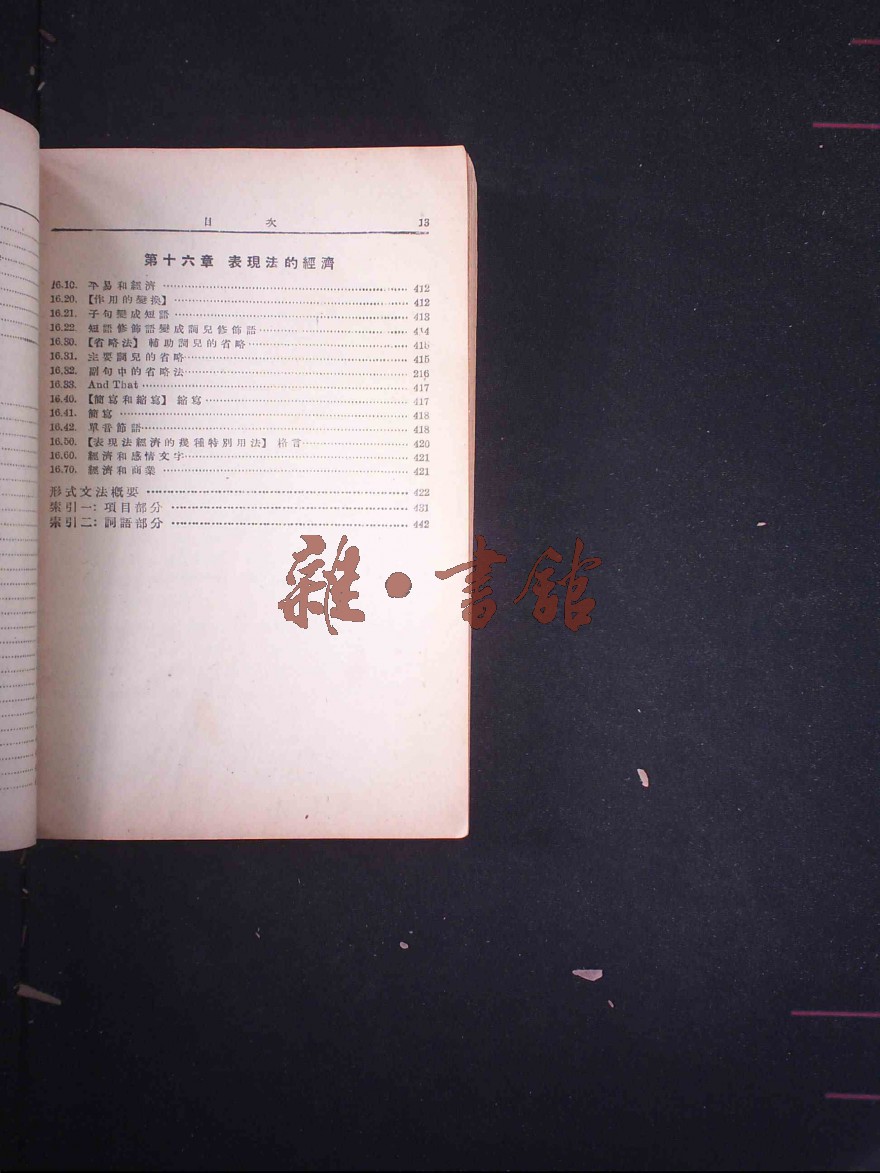 目 次 13
第十六章 表現法的經濟
16.10. 平易和經濟 412
16.20. 【作用的變換】 412
16.21. 子句變成短語 413
16.22. 短語修飾語變成詞兒修飾語 414
16.30. 【省略法】 輔助詞兒的省略 415
16.31. 主要詞兒的省略 415
16.32. 副句中的省略法 216
16.33. And That 417
16.40. 【簡寫和縮寫】 縮寫 417
16.41. 簡寫 418
16.42. 單音節語 418
16.50. 【表現法經濟的幾種特別用法】 格言 420
16.60. 經濟和感情文字 421
16.70. 經濟和商業 421
形式文法概要 422
索引一: 項目部分 431
索引二: 詞語部分 442
雜·書館